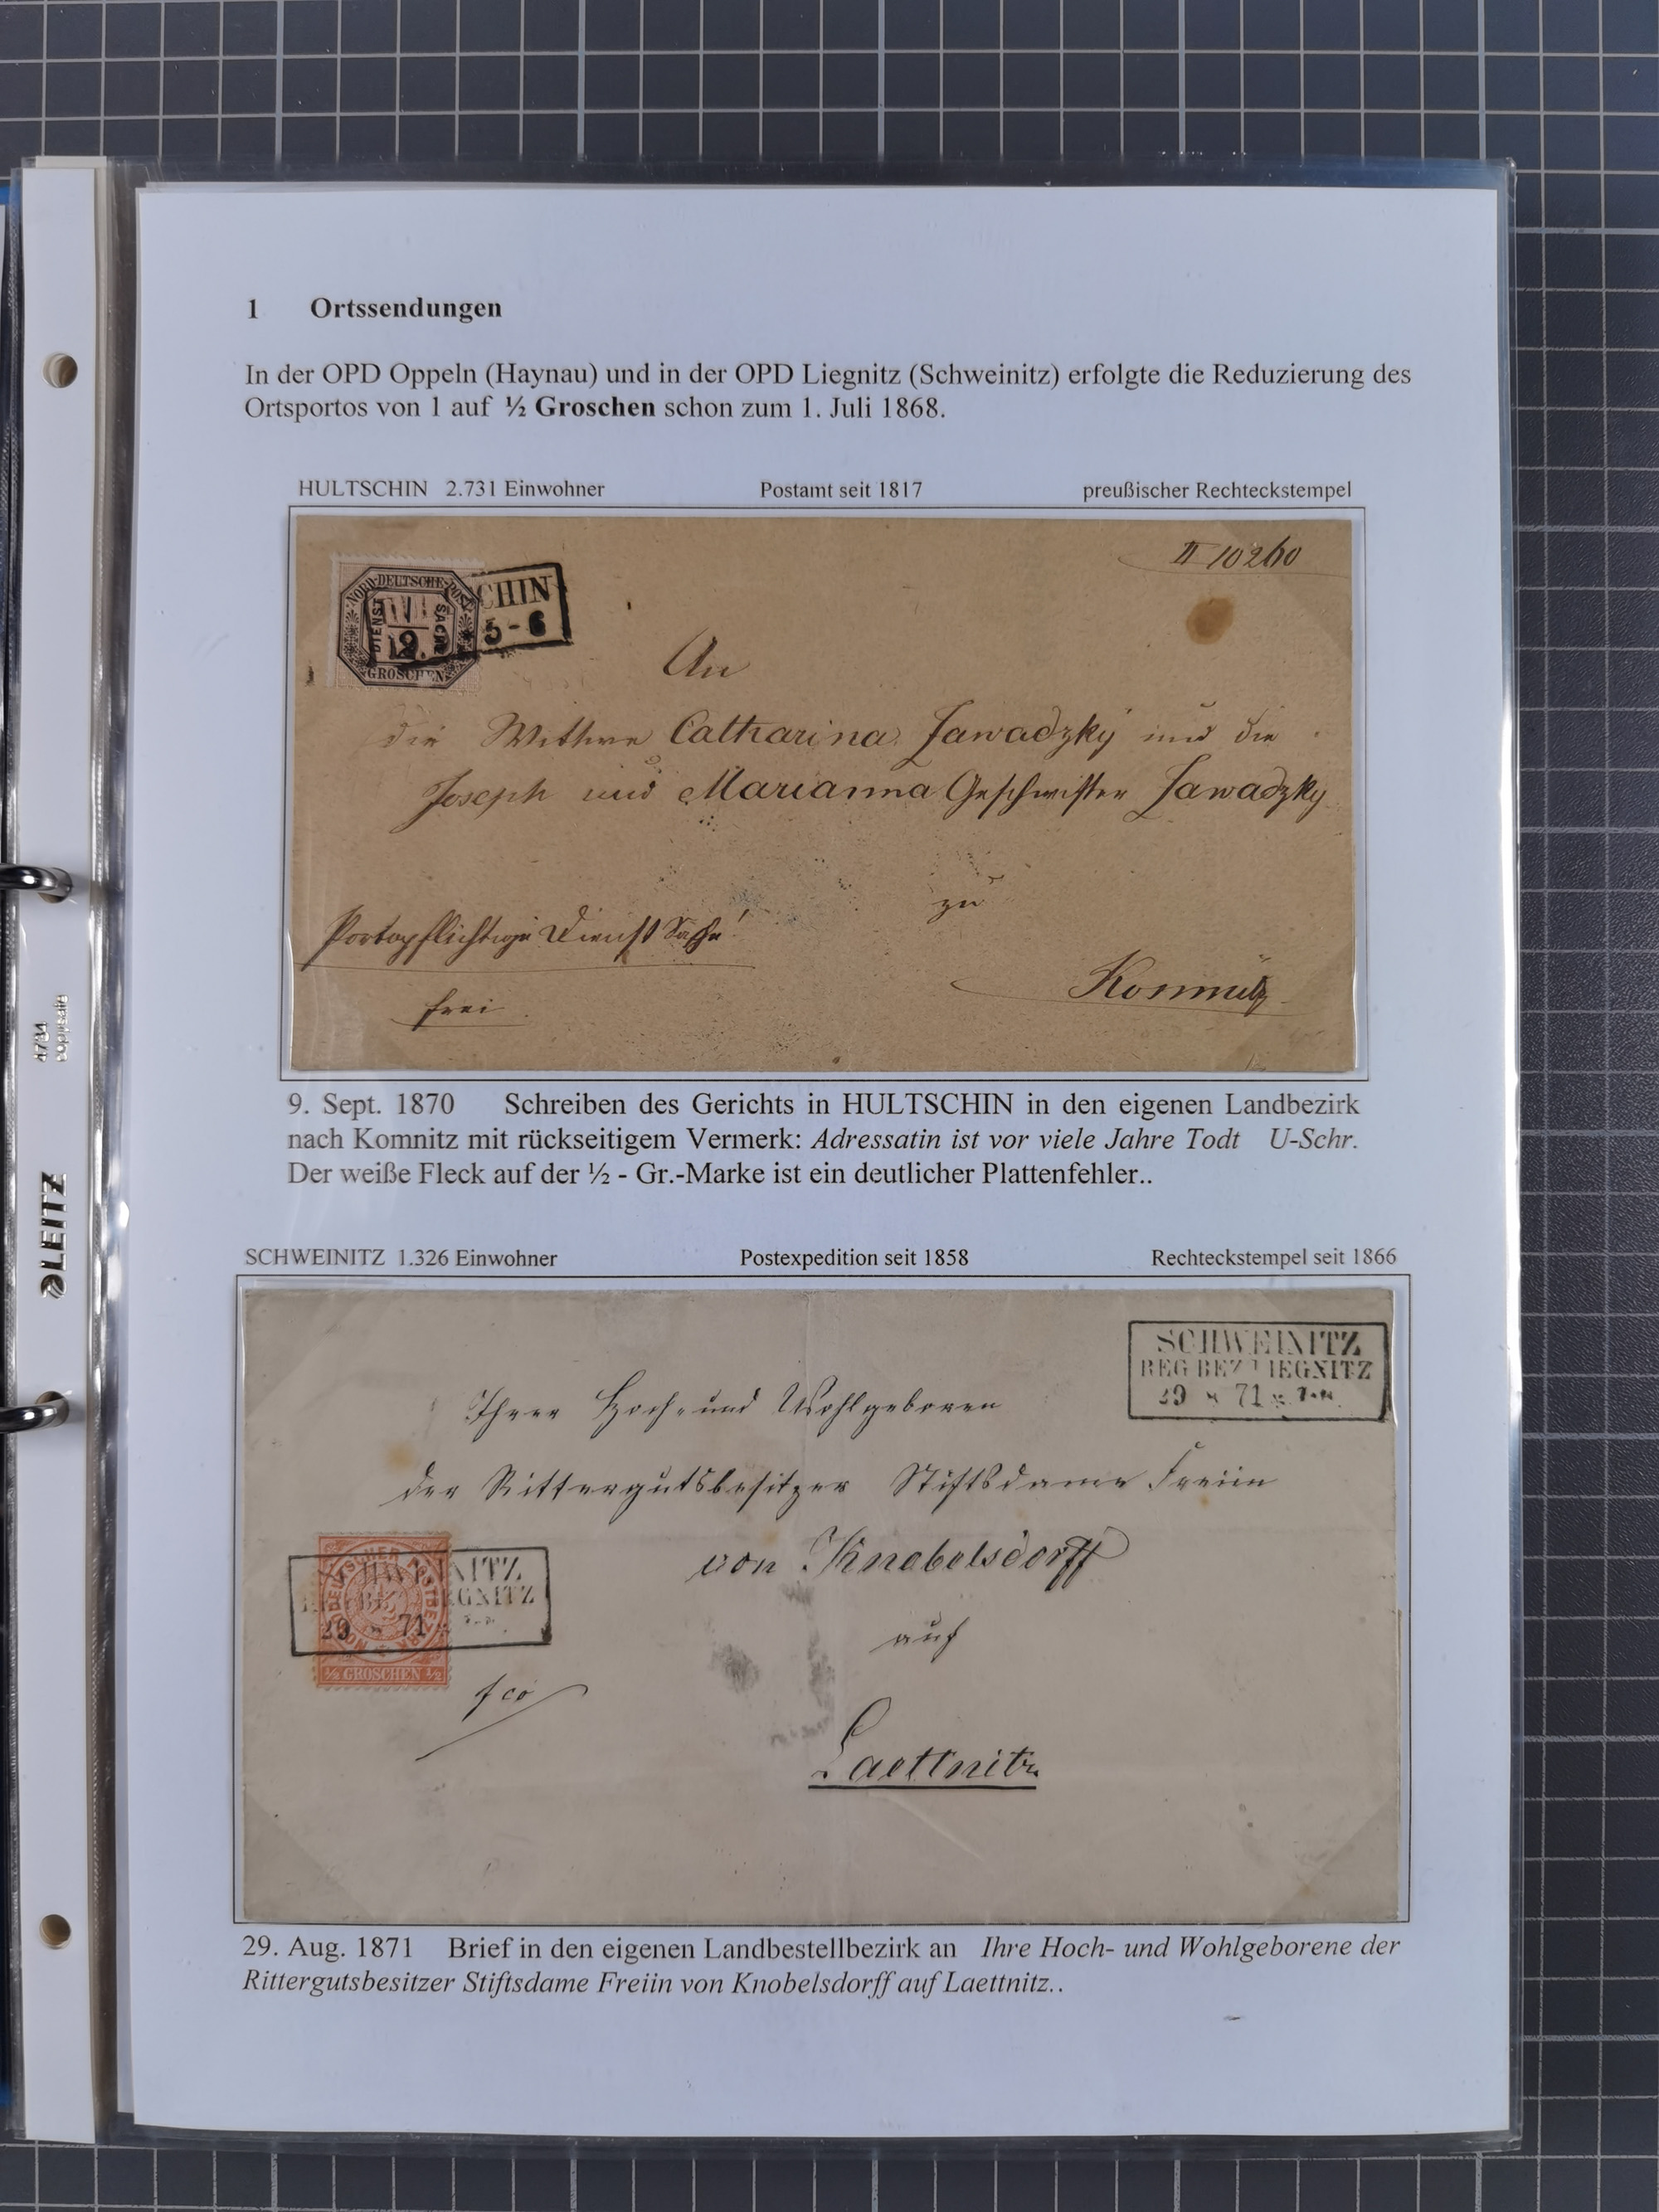 1 Ortssendungen
In der OPD Oppeln (Haynau) und in der OPD Liegnitz (Schweinitz) erfolgte die Reduzierung des
Ortsportos von 1 auf ½ Groschen schon zum 1. Juli 1868.
HULTSCHIN 2.731 Einwohner Postamt seit 1817 preußischer Rechteckstempel
II 10260
NORDDEUTSCHE POST
DIENST SACHE
GROSCHEN
CHIN
5-6
An
die Wittwe Catharina Zawadzky und die
Joseph und Marianna Geschwister Zawadzky
zu
Portopflichtige Dienst Sache!
Komnitz
frei
9. Sept. 1870 Schreiben des Gerichts in HULTSCHIN in den eigenen Landbezirk
nach Komnitz mit rückseitigem Vermerk: Adressatin ist vor viele Jahre Todt U-Schr.
Der weiße Fleck auf der ½ - Gr.-Marke ist ein deutlicher Plattenfehler..
SCHWEINITZ 1.326 Einwohner Postexpedition seit 1858 Rechteckstempel seit 1866
SCHWEINITZ
REG BEZ LIEGNITZ
29 71
Ihrer Hoch- und Wohlgeboren
der Rittergutsbesitzer Stiftsdame Freiin
von Knobelsdorff
NORDDEUTSCHER POSTBEZIRK
29 71
½ GROSCHEN ½
auf
fco
Laettnitz
29. Aug. 1871 Brief in den eigenen Landbestellbezirk an Ihre Hoch- und Wohlgeborene der
Rittergutsbesitzer Stiftsdame Freiin von Knobelsdorff auf Laettnitz..
LEITZ
4734